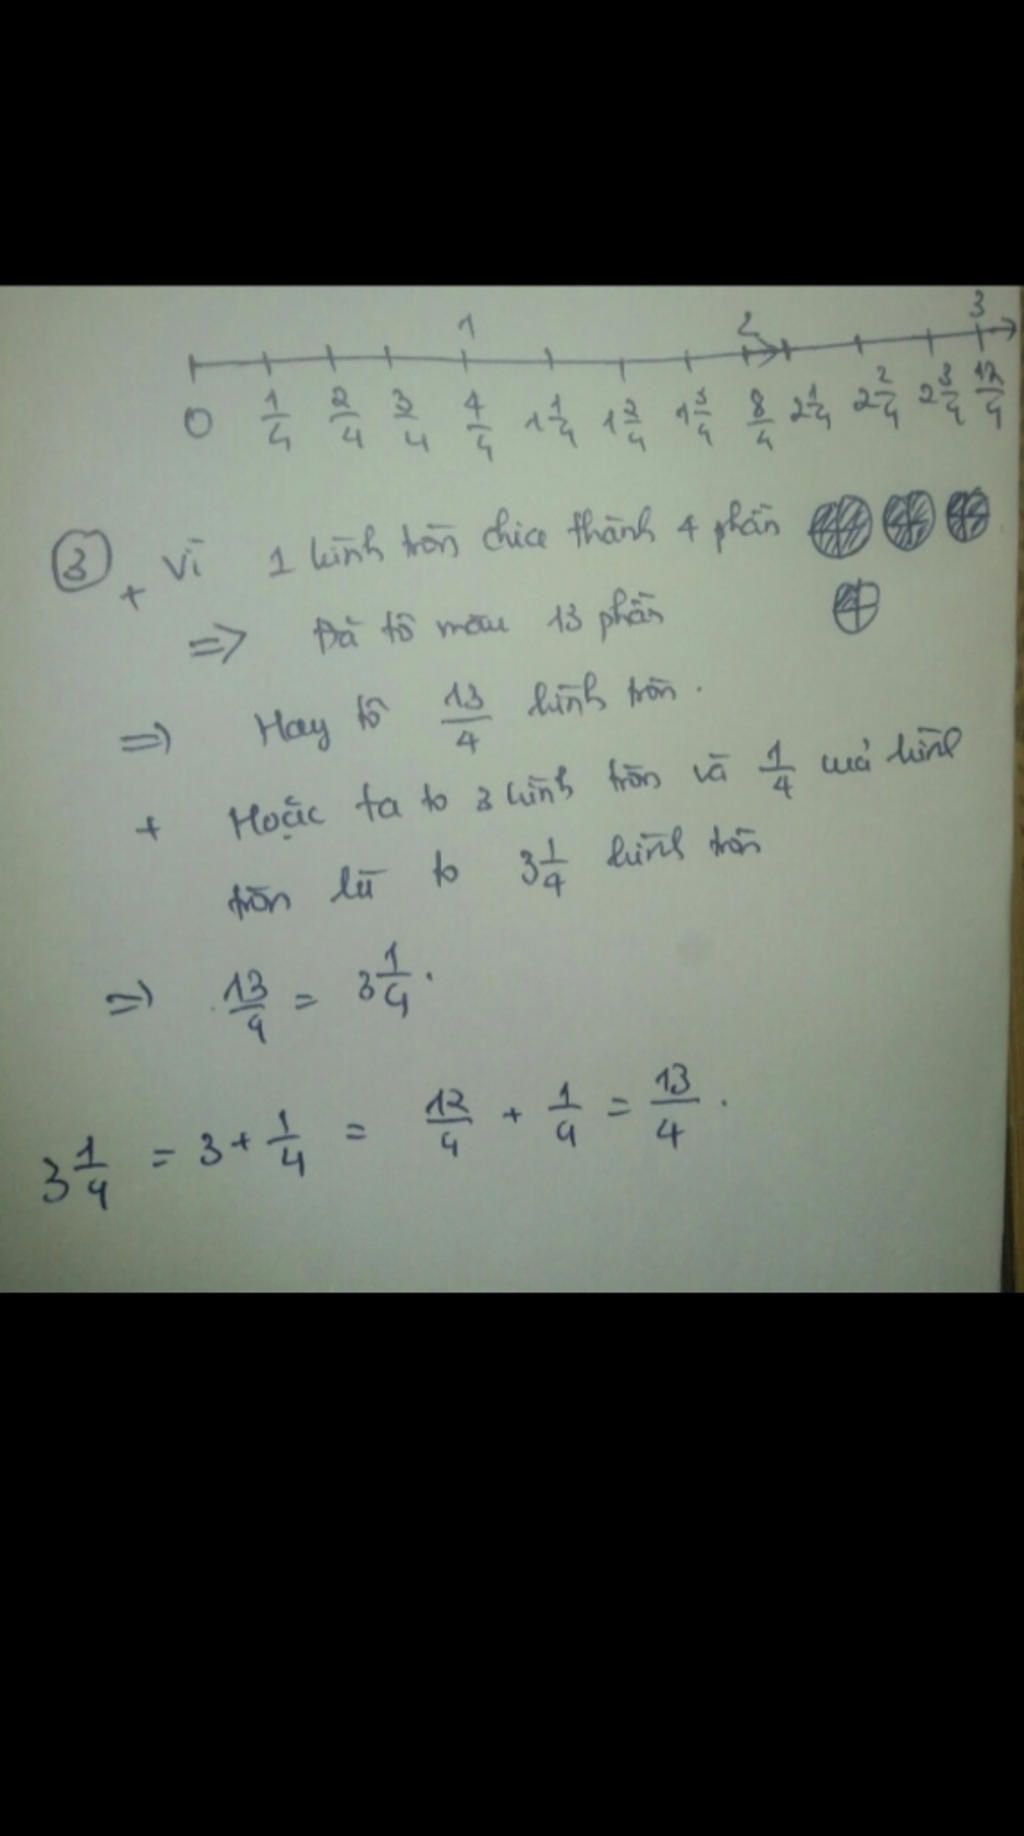 1 2 3
0 1/4 2/4 3/4 4/4 1 1/4 1 2/4 1 3/4 8/4 2 1/4 2 2/4 2 3/4 12/4
③ + Vì 1 hình tròn chia thành 4 phần
=> Đã tô màu 13 phần
=> Hay tô 13/4 hình tròn.
+ Hoặc ta tô 3 hình tròn và 1/4 của hình
tròn là tô 3 1/4 hình tròn
=> 13/4 = 3 1/4.
3 1/4 = 3 + 1/4 = 12/4 + 1/4 = 13/4.